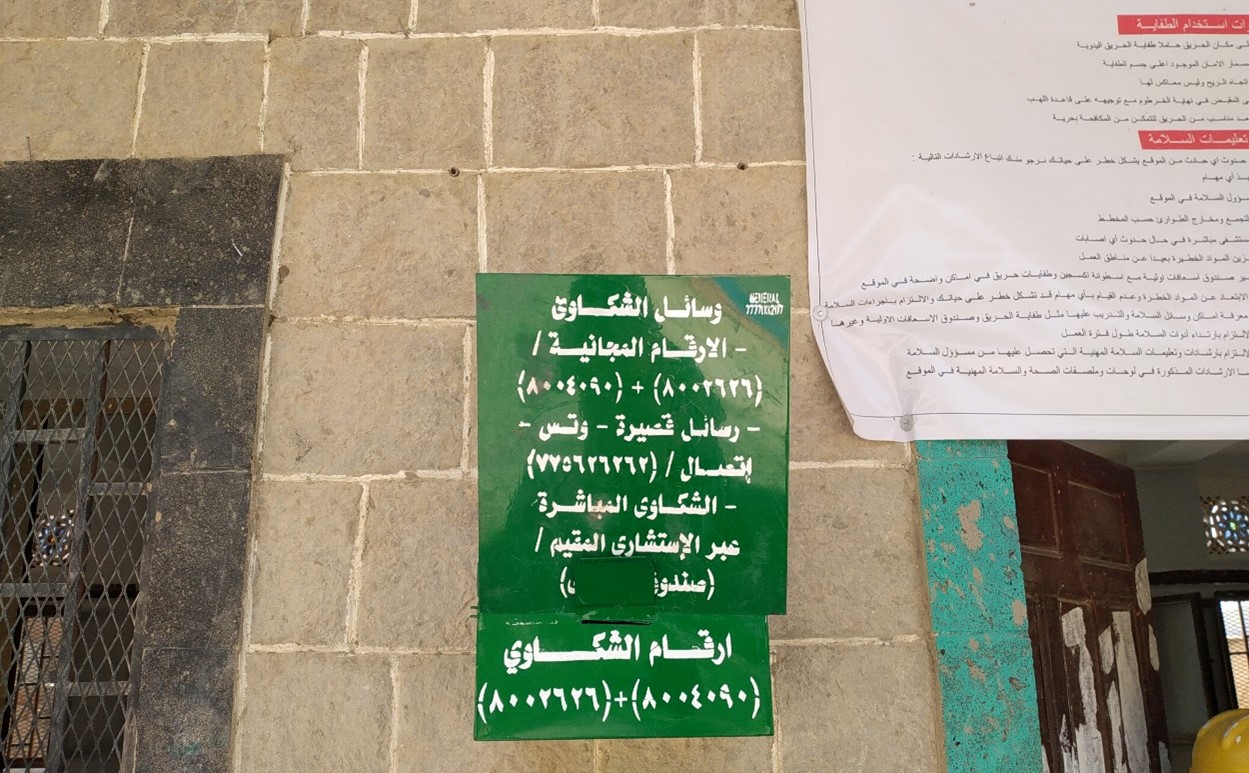 وسائل الشكاوى
- الارقام المجانية /
(٨٠٠٢٦٢٦) + (٨٠٠٤٠٩٠)
- رسائل قصيرة - وتس -
إتصال / (٧٧٥٦٢٦٢٦٢)
- الشكاوى المباشرة
عبر الإستشارى المقيم /
ارقام الشكاوي
(٨٠٠٤٠٩٠)+(٨٠٠٢٦٢٦)
GENERAL
ات استخدام الطفاية
مكان الحريق حاملا طفاية الحريق اليدوية
سمار الامان الموجود اعلى جسم الطفاية
اتجاه الريح وليس معاكس لها
المقبض في نهاية الخرطوم مع توجيهه على قاعدة اللهب
مناسب من الحريق لتتمكن من المكافحة بحرية
تعليمات السلامة
حدوث اي حادث من الموقع يشكل خطر على حياتك نرجو منك اتباع الارشادات التالية :
أي مهام
ؤول السلامة في الموقع
لتجمع ومخارج الطوارئ حسب المخطط
ستشفى مباشرة في حال حدوث أي اصابات
زين المواد الخطيرة بعيدا عن مناطق العمل
ير صندوق اسعافات اولية مع اسطوانة اكسجين وطفايات حريق في اماكن واضحة في الموقع
الابتعاد عن المواد الخطرة وعدم القيام بأي مهام قد تشكل خطر على حياتك والالتزام باجراءات السلامة
معرفة اماكن وسائل السلامة والتدريب عليها مثل طفاية الحريق وصندوق الاسعافات الاولية وغيرها
لالتزام بارتداء أدوات السلامة طول فترة العمل
لالتزام بارشادات وتعليمات السلامة المهنية التي تحصل عليها من مسؤول السلامة
ا الارشادات المذكورة في لوحات وملصقات الصحة والسلامة المهنية في الموقع